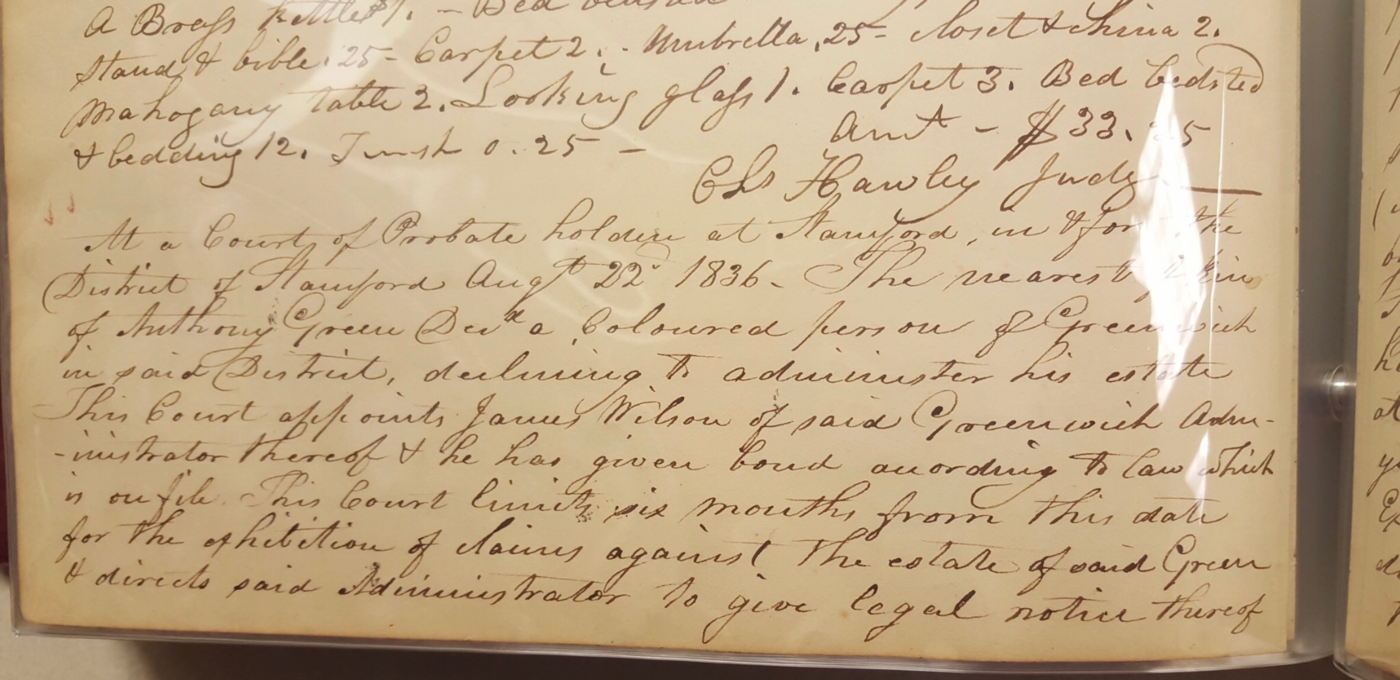 A Brass kettle $1. - Bed
stand & bible .25 - Carpet 2. - Umbrella .25 - closet & china 2.
Mahogany table 2. Looking glass 1. Carpet 3. Bed bedsted
& bedding 12. 0.25 - Amt - $33.25
Chs Hawley Judge
At a Court of Probate holden at Stamford, in & for the
District of Stamford Augt 22d 1836. The nearest of kin
of Anthony Green Decd a Coloured person of Greenwich
in said District, declining to administer his estate
This Court appoints James Wilson of said Greenwich Adm-
-inistrator thereof & he has given bond according to law which
is on file. This Court limits six months from this date
for the exhibition of claims against the estate of said Green
& directs said Administrator to give legal notice thereof